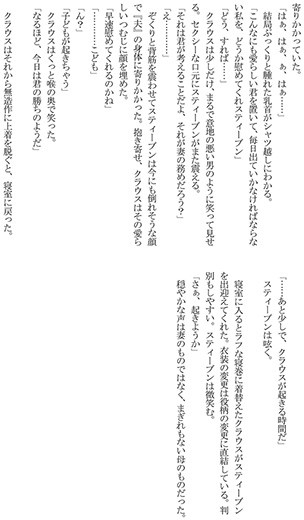 寄りかかっていた。
「はぁ、はぁ、は、はぁ……」
結局ぷっくりと腫れた乳首がシャツ越しにわかる。
「こんなにも愛らしい君を置いて、毎日出ていかなければならな
い私を、どうか慰めてくれスティーブン」
「どう、すれば……」
クラウスは少しだけ、まるで意地の悪い男のように笑って見せ
る。セクシーな口元にスティーブンがまた震える。
「それは君が考えることだよ、それが妻の務めだろう？」
「え………」
ぞくりと背筋を震わせてスティーブンは今にも倒れそうな顔
で『夫』の身体に寄りかかった。抱き寄せ、クラウスはその愛ら
しいつむじに顔を埋めた。
「早速慰めてくれるのかね」
「……こども」
「ん？」
「子どもが起きちゃう」
クラウスはくっと喉の奥で笑った。
「なるほど、今日は君の勝ちのようだ」
クラウスはそれから無造作に上着を脱ぐと、寝室に戻った。
「……あと少しで、クラウスが起きる時間だ」
スティーブンは呟く。
寝室に入るとラフな寝巻に着替えたクラウスがスティーブン
を出迎えてくれた。衣装の変更は役柄の変更に直結している。判
別もしやすい。スティーブンは微笑む。
「さぁ、起きようか」
穏やかな声は妻のものではなく、まぎれもない母のものだった。